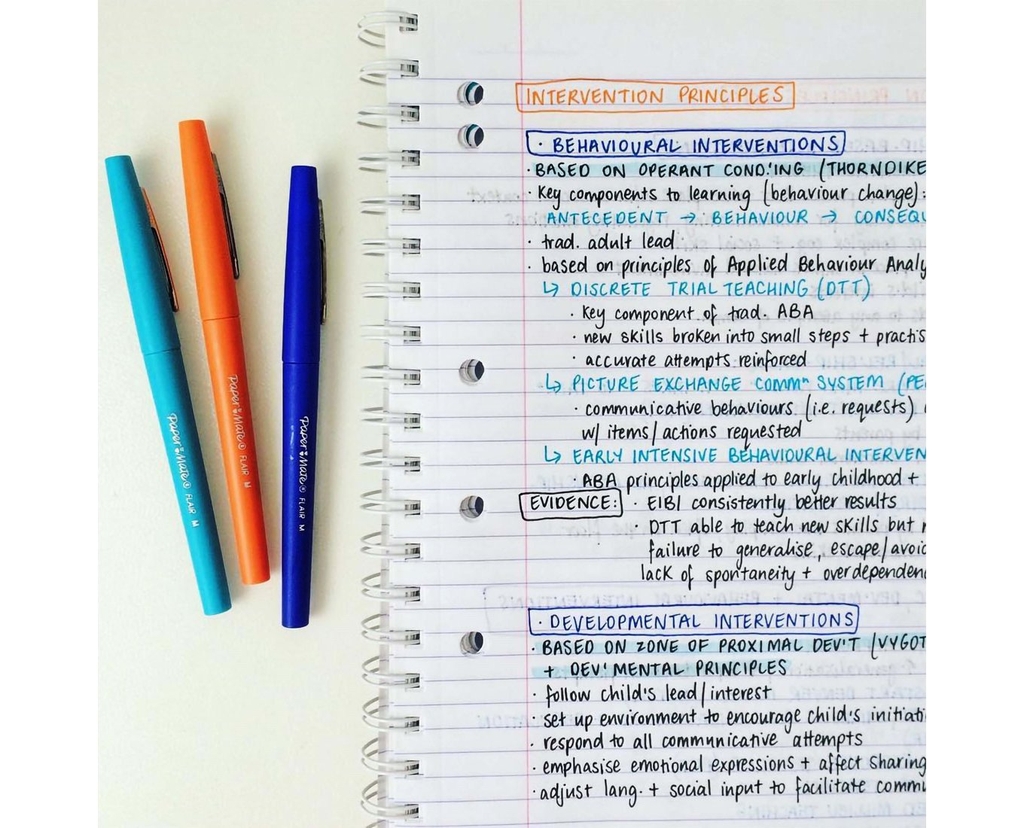 INTERVENTION PRINCIPLES
· BEHAVIOURAL INTERVENTIONS
· BASED ON OPERANT COND.'ING (THORNDIKE
· Key components to learning (behaviour change):
ANTECEDENT → BEHAVIOUR → CONSEQU
· trad. adult lead
· based on principles of Applied Behaviour Analy
↳ DISCRETE TRIAL TEACHING (DTT)
· Key component of trad. ABA
· new skills broken into small steps + practis
· accurate attempts reinforced
↳ PICTURE EXCHANGE COMMⁿ SYSTEM (PE
· communicative behaviours (i.e. requests)
w/ items/actions requested
↳ EARLY INTENSIVE BEHAVIOURAL INTERVEN
· ABA principles applied to early childhood +
EVIDENCE: · EIBI consistently better results
· DTT able to teach new skills but
failure to generalise, escape/avoid
lack of spontaneity + overdependen
· DEVELOPMENTAL INTERVENTIONS
· BASED ON ZONE OF PROXIMAL DEV'T (VYGOT
+ DEV'MENTAL PRINCIPLES
· follow child's lead/interest
· set up environment to encourage child's initiati
· respond to all communicative attempts
· emphasise emotional expressions + affect sharing
· adjust lang. + social input to facilitate commu
Paper Mate® FLAIR M
Paper Mate® FLAIR M
Paper Mate® FLAIR M